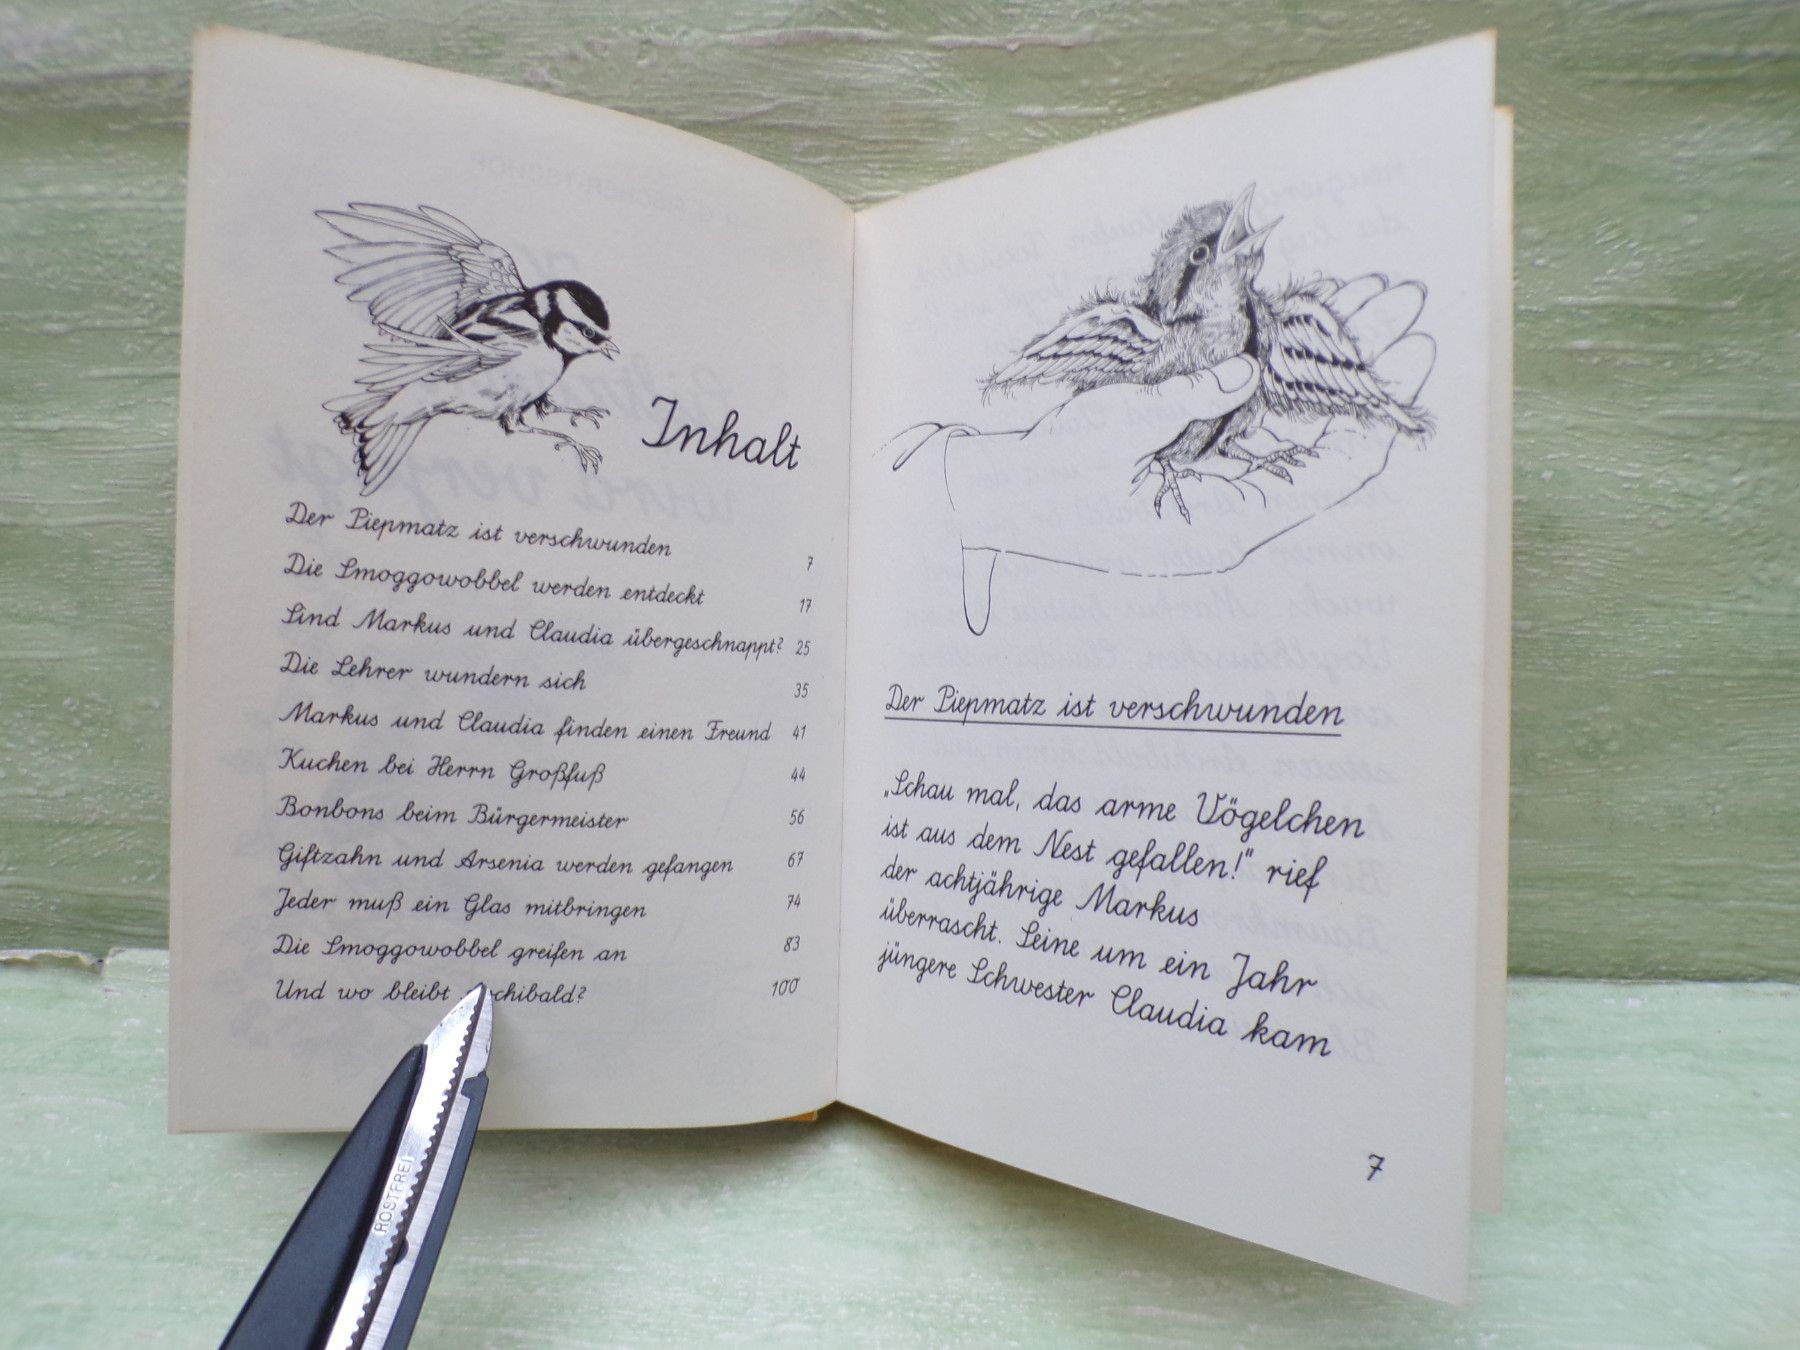 Inhalt
Der Piepmatz ist verschwunden 7
Die Smoggowobbel werden entdeckt 17
Sind Markus und Claudia übergeschnappt? 25
Die Lehrer wundern sich 35
Markus und Claudia finden einen Freund 41
Kuchen bei Herrn Großfuß 44
Bonbons beim Bürgermeister 56
Giftzahn und Arsenia werden gefangen 67
Jeder muß ein Glas mitbringen 74
Die Smoggowobbel greifen an 83
Und wo bleibt chibald? 100
ROSTFREI
Der Piepmatz ist verschwunden
„Schau mal, das arme Vögelchen
ist aus dem Nest gefallen!" rief
der achtjährige Markus
überrascht. Seine um ein Jahr
jüngere Schwester Claudia kam
7